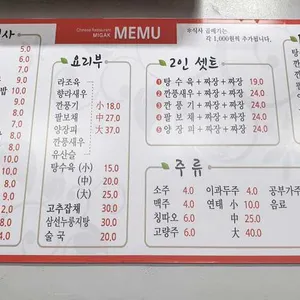 Chinese Restaurant
MIGAK MEMU
우식사 곱빼기는
각 1,000원씩 추가됩니다.
사
5.0
6.0
밥 10.0
요리부
라조육
향라새우
깐풍기 小 18.0
팔보채 中 27.0
양장피 大 37.0
깐풍새우
유산슬
탕수육 (小) 15.0
(中) 20.0
(大) 25.0
고추잡채 30.0
삼선누룽지탕 30.0
술국 20.0
2인 셋트
❶ 탕수육 + 짜장 + 짜장 19.0
❷ 깐풍새우 + 짜장 + 짜장 24.0
❸ 깐풍기 + 짜장 + 짜장 24.0
❹ 팔보채 + 짜장 + 짜장 24.0
❺ 양장피 + 짜장 + 짜장 24.0
주류
소주 4.0 이과두주 4.0 공부가주
맥주 4.0 연태 小 10.0 음료
칭따오 6.0 中 25.0
고량주 6.0 大 40.0